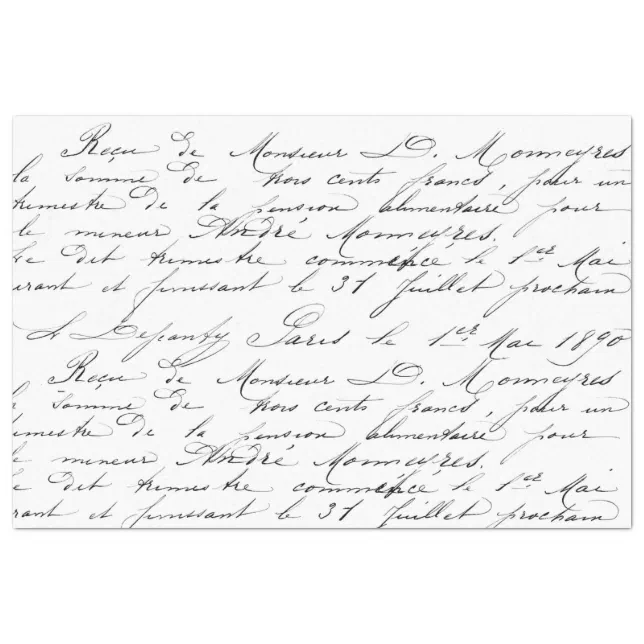 Reçu de Monsieur D. Monneyres
la somme de trois cents francs, pour un
trimestre de la pension alimentaire pour
le mineur André Monneyres.
Le dit trimestre commencé le 1er Mai
urant et finissant le 31 Juillet prochain
Paris le 1er Mai 1890
Reçu de Monsieur D. Monneyres
somme de trois cents francs, pour un
imestre de la pension alimentaire pour
le mineur André Monneyres.
e dit trimestre commencé le 1er Mai
rant et finissant le 31 Juillet prochain